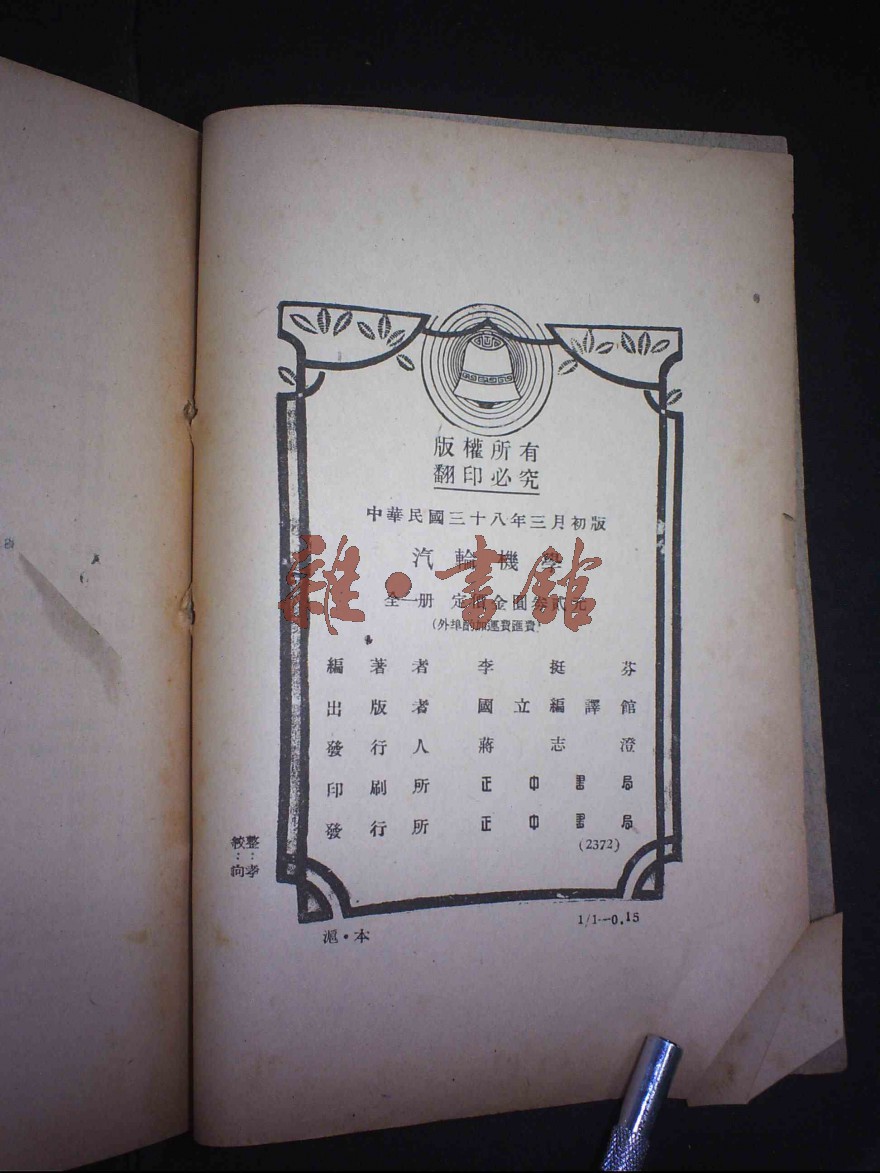 版權所有
翻印必究
中華民國三十八年三月初版
汽輪機學
雜·書館
全一册 定價金圓叁貳元
(外埠酌加運費匯費)
編著者 李挺芬
出版者 國立編譯館
發行人 蔣志澄
印刷所 正中書局
發行所 正中書局
(2372)
整:孝
校:向
滬·本
1/1—0.15